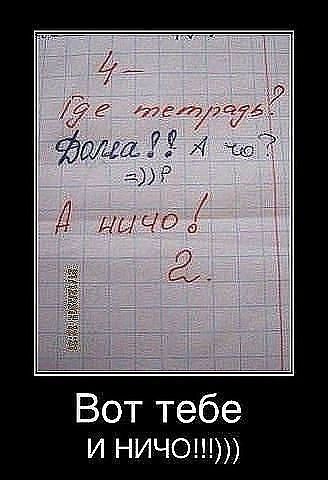 4-
Где тетрадь?
Дома!! А чо?
=))?
А ничо!
2.
Вот тебе
И НИЧО!!!)))